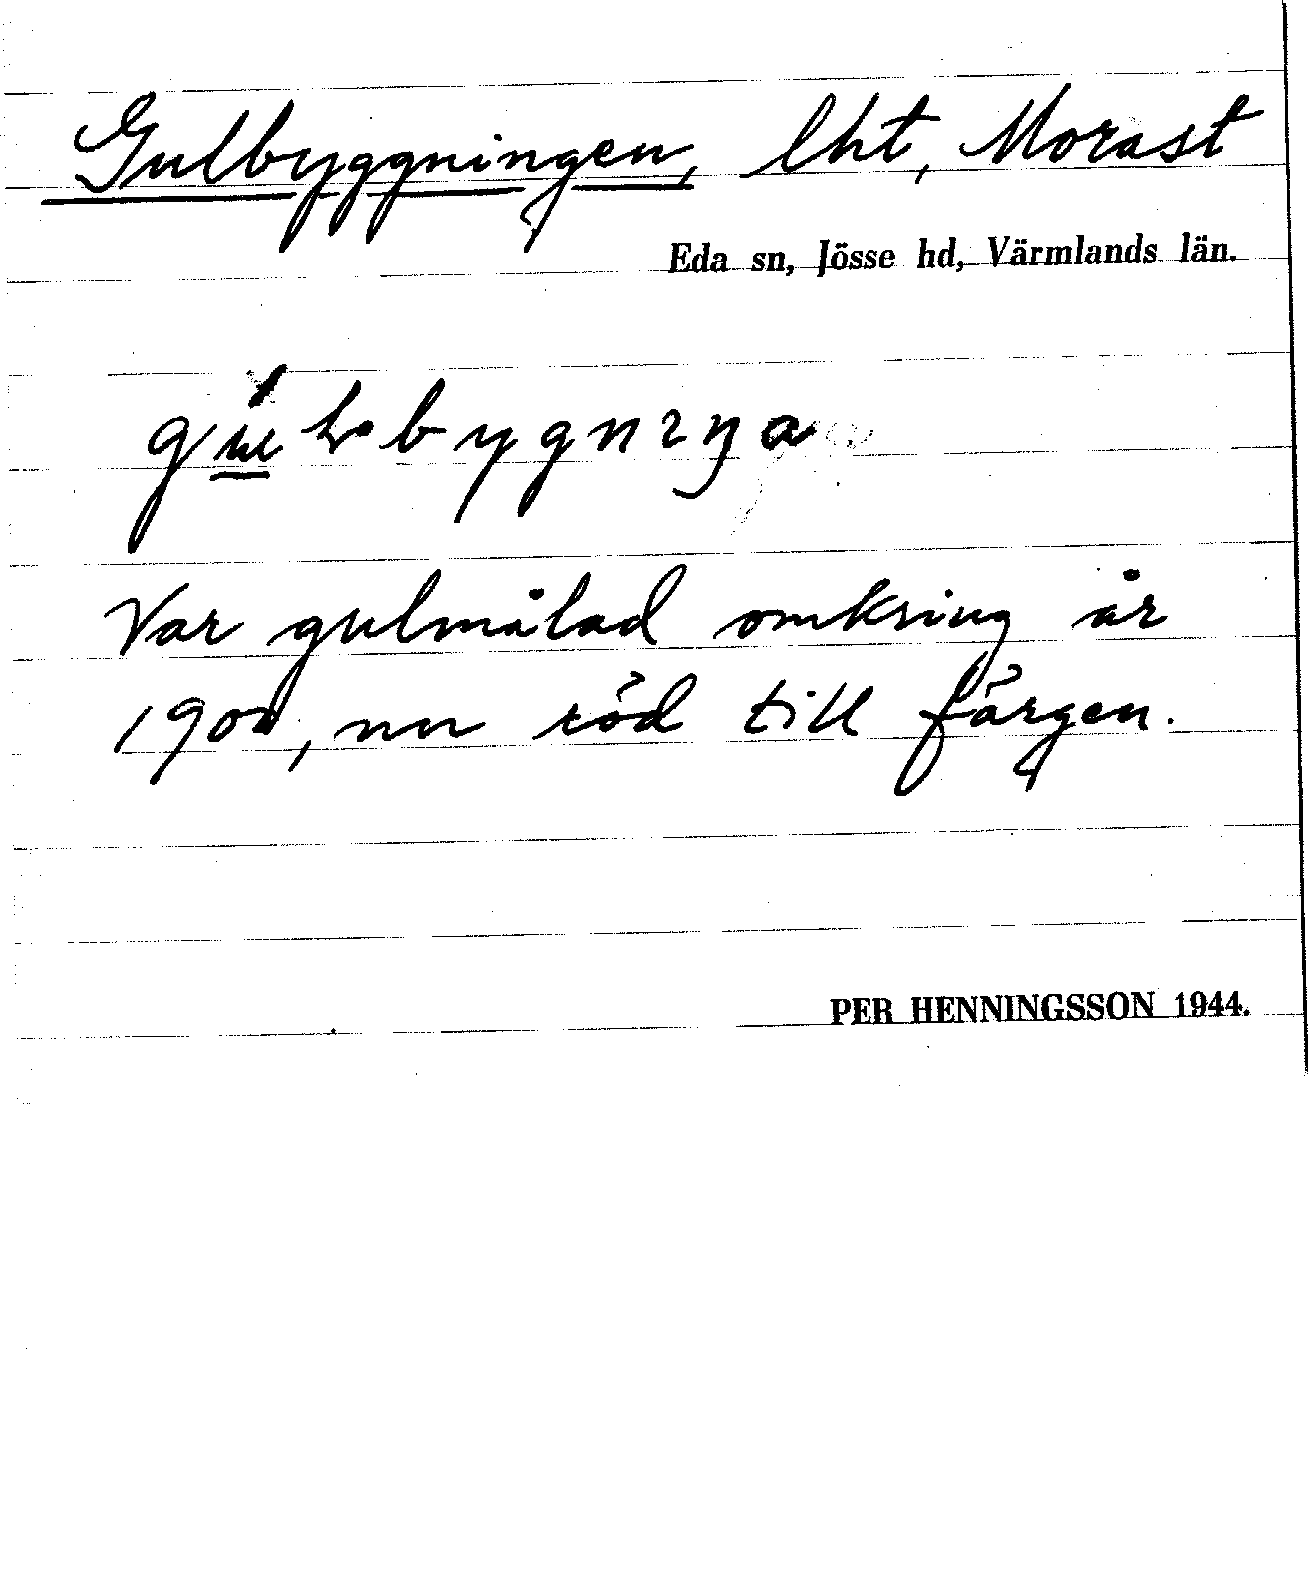 Gulbyggningen, lht, Morast
Eda sn, Jösse hd, Värmlands län.
Var gulmålad omkring år
1900, nu röd till färgen.
PER HENNINGSSON 1944.